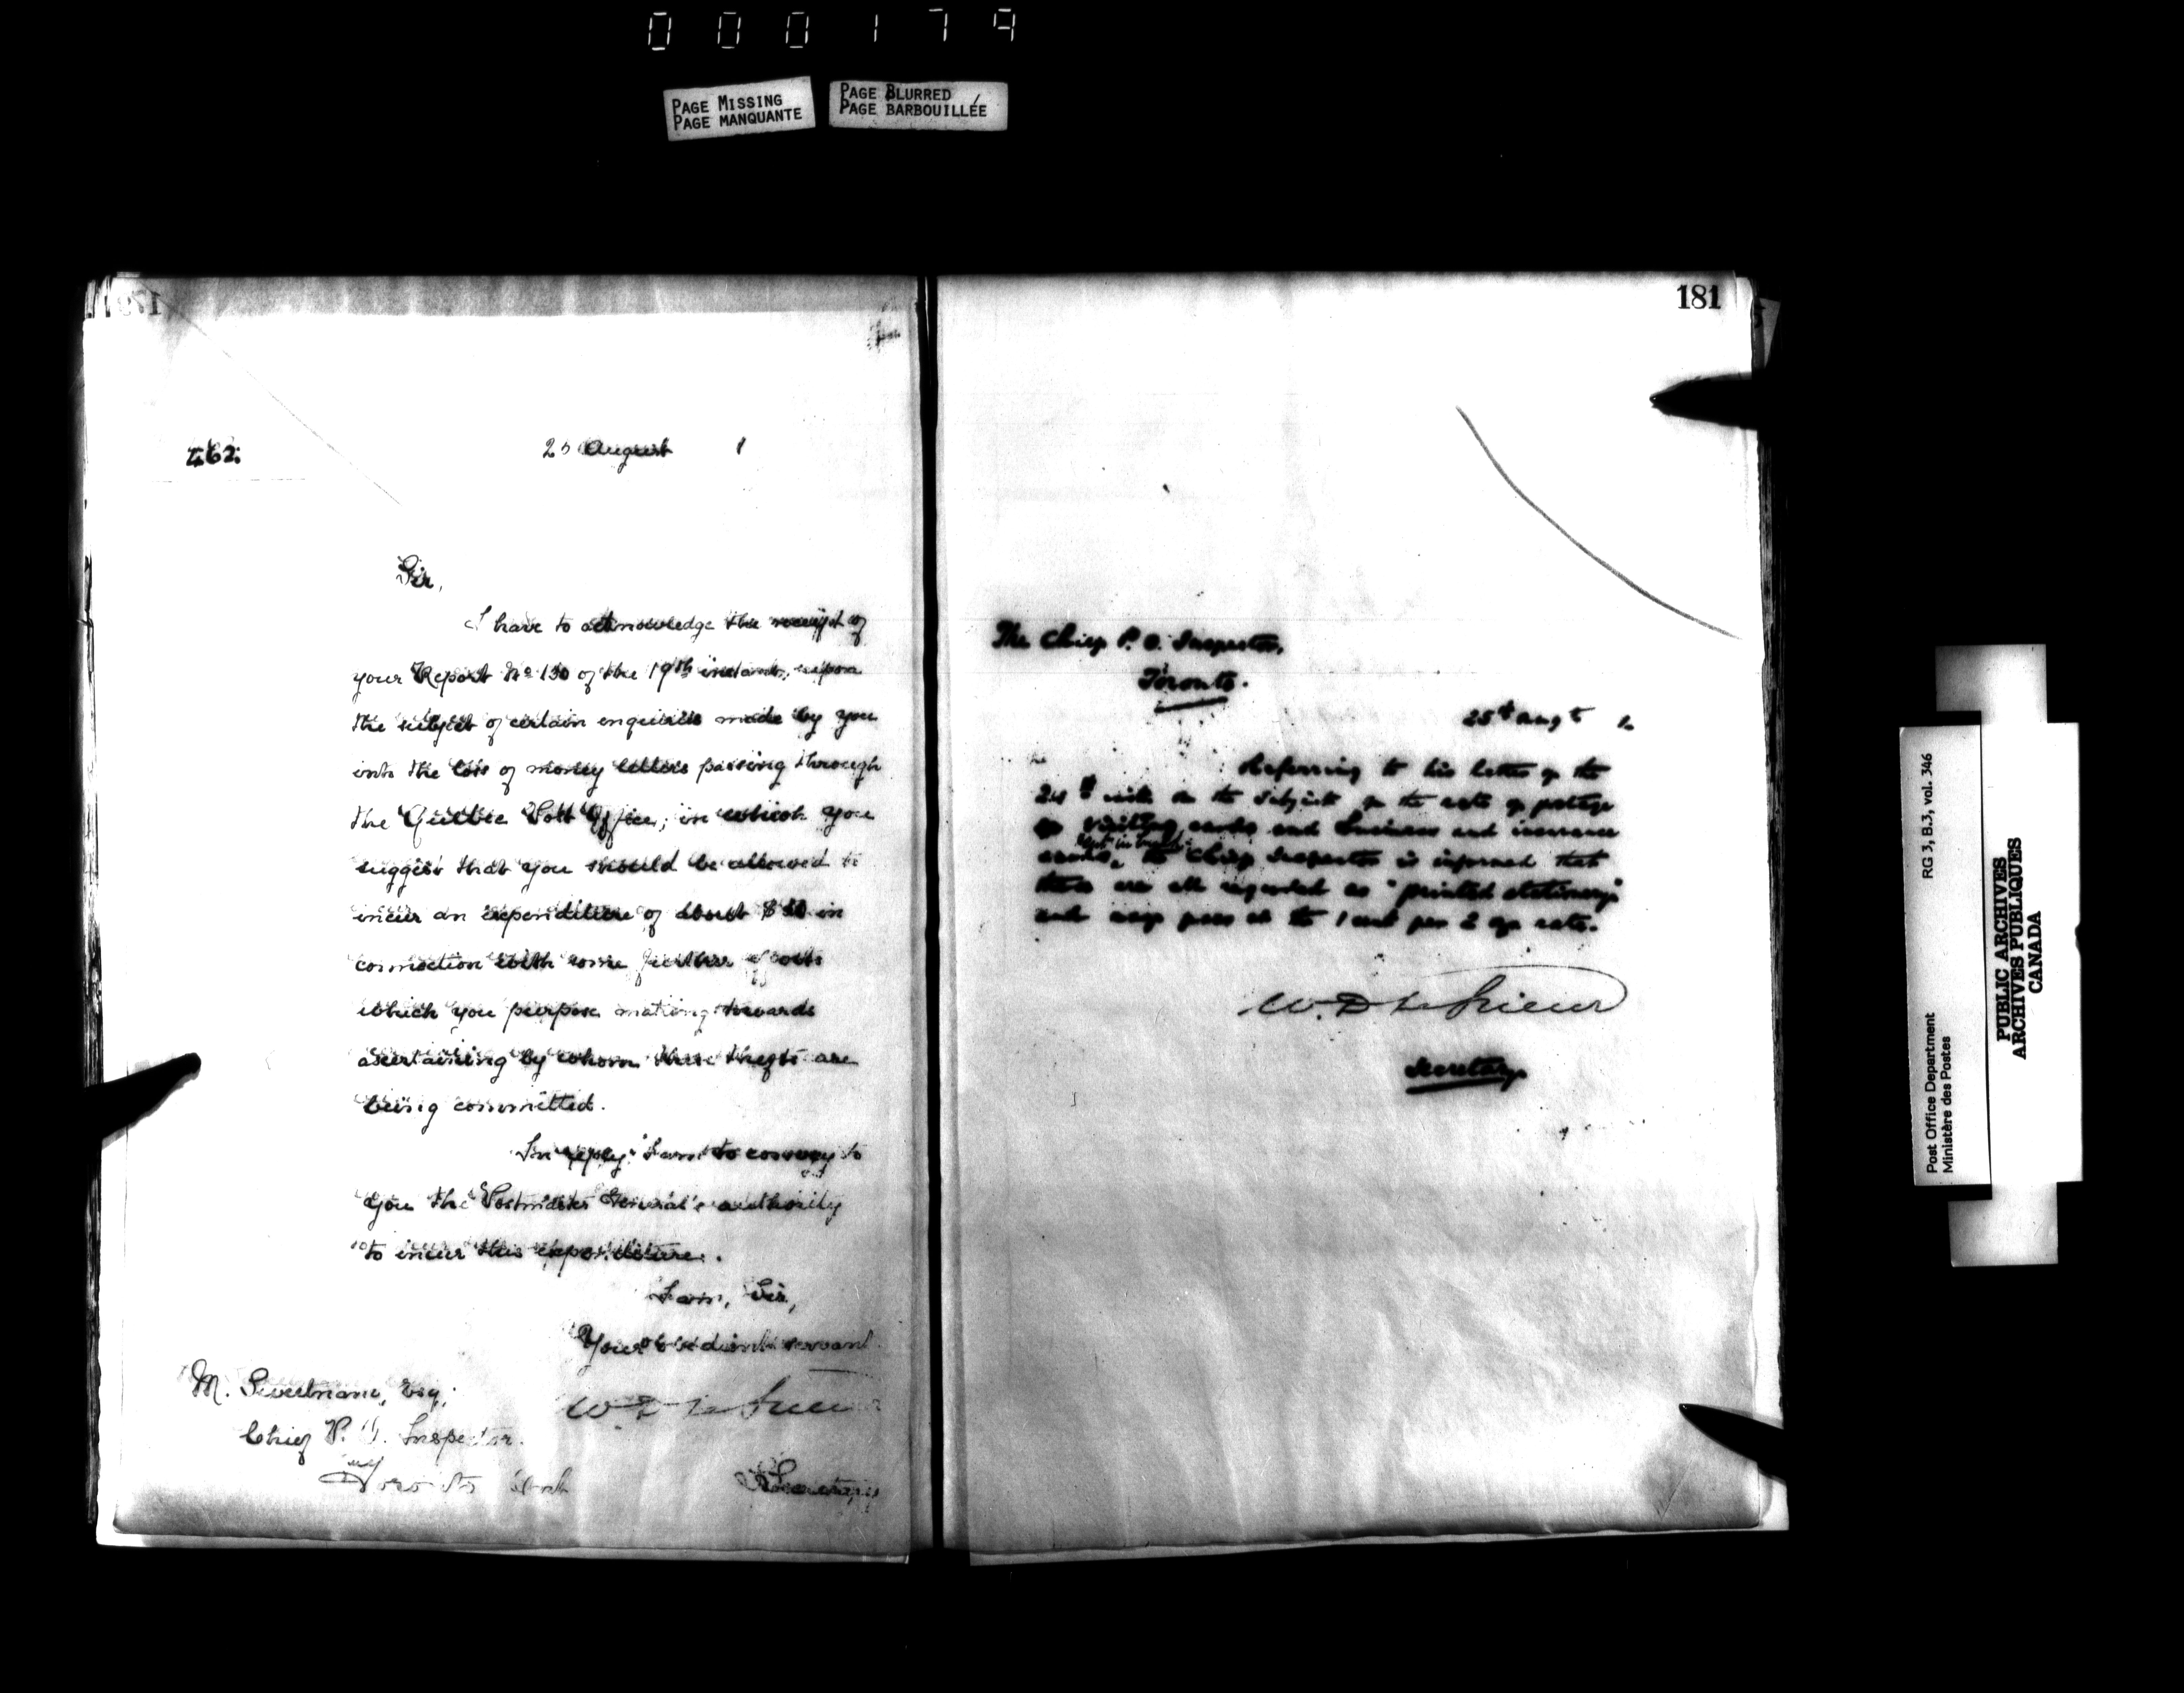 000179
PAGE MISSING
PAGE MANQUANTE
PAGE BLURRED
PAGE BARBOUILLÉE
462
25 August 1
Sir,
I have to acknowledge the receipt of
your Report No 130 of the 19th instant, upon
the subject of certain enquiries made by you
into the loss of money letters passing through
the Quebec Post Office; in which you
suggest that you should be allowed to
incur an expenditure of about $50 in
connection with some further efforts
which you purpose making towards
ascertaining by whom these thefts are
being committed.
In reply I am to convey to
you the Postmaster General's authority
to incur this expenditure.
I am, Sir,
Your obedient servant
W. D. LeSueur
Secretary
M. Sweetnam, Esq.,
Chief P. O. Inspector.
Toronto
181
The Chief P. O. Inspector,
Toronto.
25th Augt 1
Referring to his letter of the
24th on the subject of the rate of postage
on visiting cards and business and insurance
cards, the Chief Inspector is informed that
these are all regarded as "printed stationery"
and may pass at the 1 cent per 2 oz rate.
W. D. LeSueur
Secretary
Post Office Department
Ministère des Postes
RG 3, B.3, vol. 346
PUBLIC ARCHIVES
ARCHIVES PUBLIQUES
CANADA